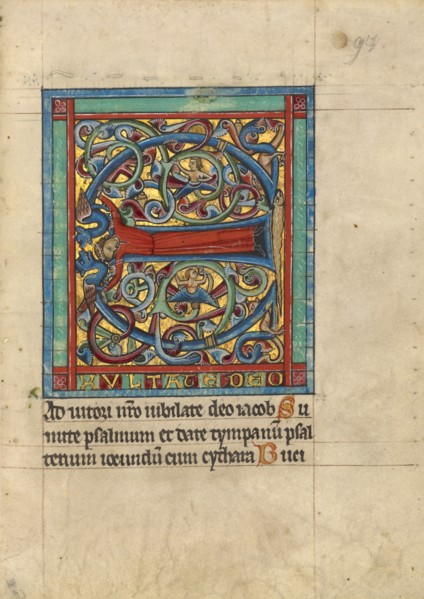 E
XVLTATE
Ad iutori nr̄o iubilate deo iacob Su
mite psalmum et date tympanū psal
terium iocundū cum cythara Buci